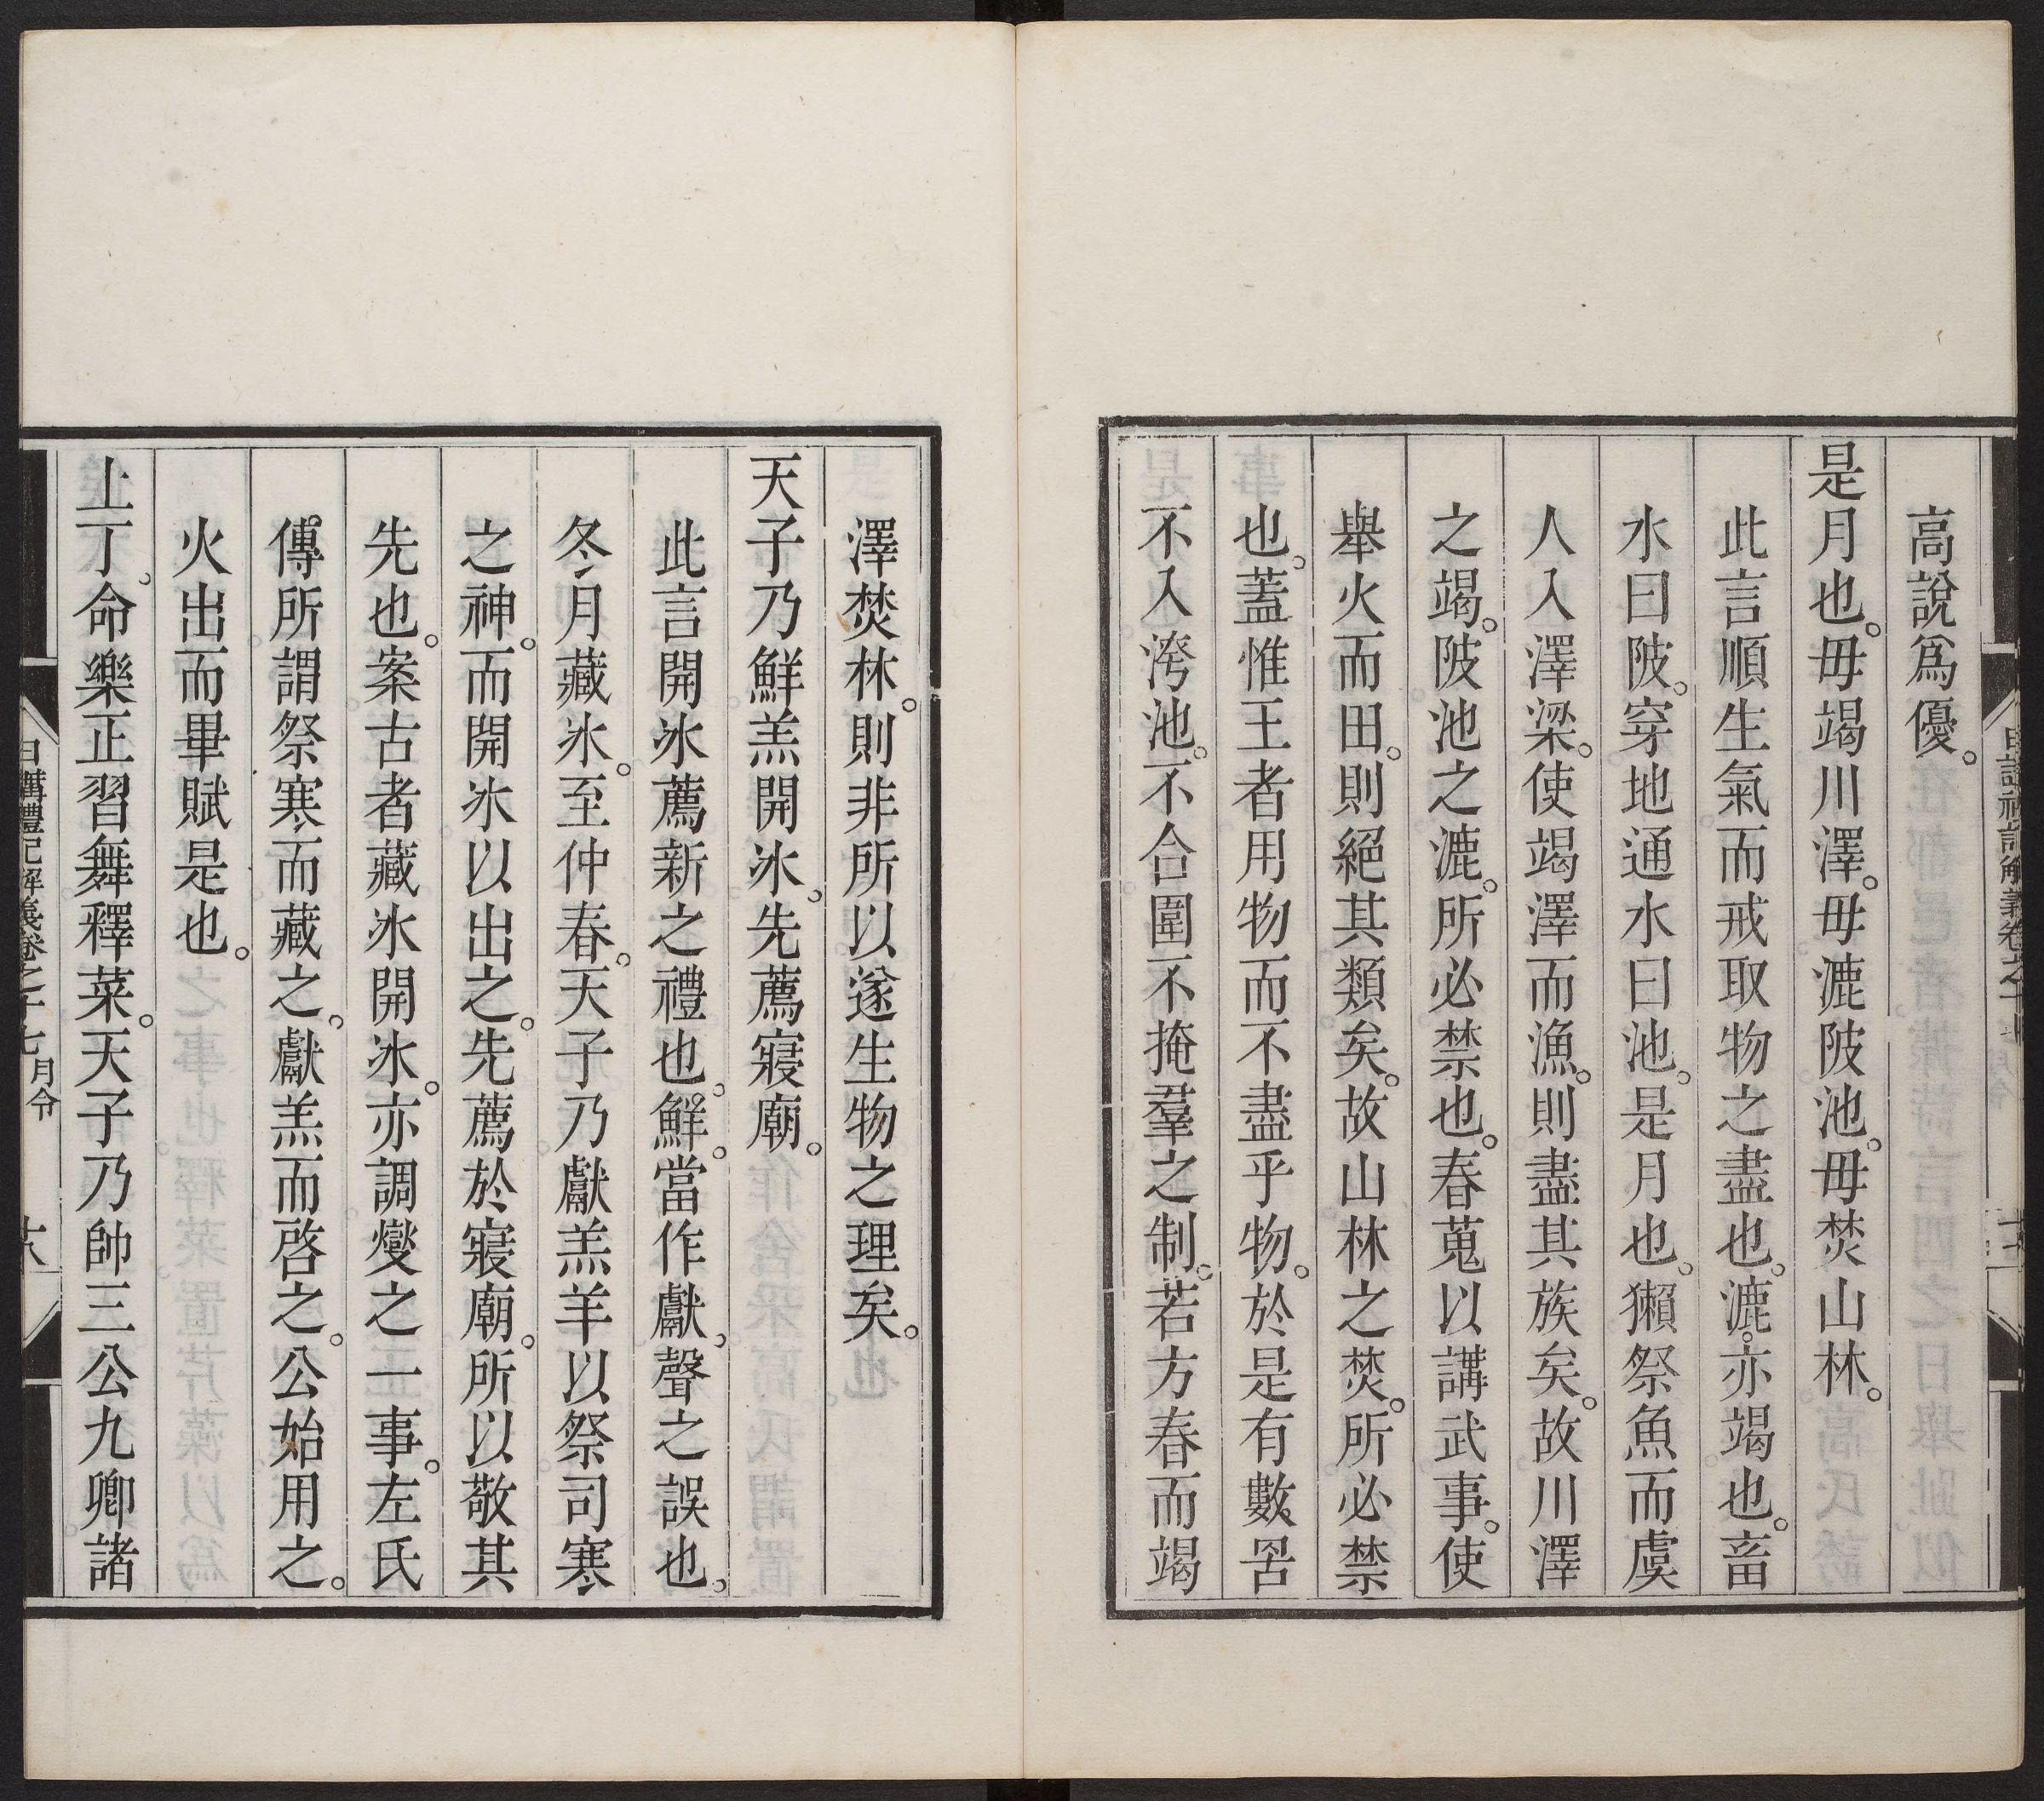 高說爲優。
是月也。毋竭川澤。毋漉陂池。毋焚山林。
此言順生氣而戒取物之盡也。漉。亦竭也。畜
水曰陂。穿地通水曰池。是月也。獺祭魚而虞
人入澤梁。使竭澤而漁。則盡其族矣。故川澤
之竭。陂池之漉。所必禁也。春蒐以講武事。使
舉火而田。則絕其類矣。故山林之焚。所必禁
也。蓋惟王者用物而不盡乎物。於是有數罟
不入洿池。不合圍不掩羣之制。若方春而竭
澤焚林。則非所以遂生物之理矣。
天子乃鮮羔開冰。先薦寢廟。
此言開冰薦新之禮也。鮮。當作獻。聲之誤也。
冬月藏冰。至仲春。天子乃獻羔羊以祭司寒
之神。而開冰以出之。先薦於寢廟。所以敬其
先也。案古者藏冰開冰。亦調燮之一事。左氏
傳所謂祭寒而藏之。獻羔而啓之。公始用之。
火出而畢賦是也。
上丁。命樂正習舞釋菜。天子乃帥三公九卿諸
日講禮記解義卷之十七 月令 十八